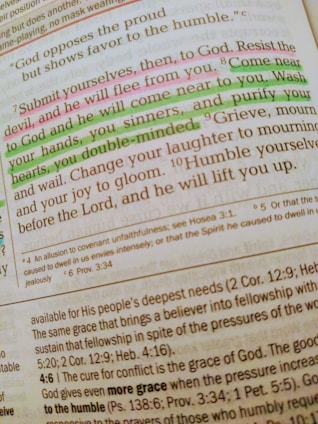 their position
ing but does another.
me-playing, no mask wearing
"God opposes the proud
but shows favor to the humble." c
7 Submit yourselves, then, to God. Resist the
devil, and he will flee from you. 8 Come near
to God and he will come near to you. Wash
your hands, you sinners, and purify your
hearts, you double-minded. 9 Grieve, mourn
and wail. Change your laughter to mourning
and your joy to gloom. 10 Humble yourselve
before the Lord, and he will lift you up.
a 4 An allusion to covenant unfaithfulness; see Hosea 3:1. b 5 Or that the s
caused to dwell in us envies intensely; or that the Spirit he caused to dwell in u
jealously c 6 Prov. 3:34
available for His people's deepest needs (2 Cor. 12:9; Heb
The same grace that brings a believer into fellowship with
sustain that fellowship in spite of the pressures of the wo
5:20; 2 Cor. 12:9; Heb. 4:16).
4:6 | The cure for conflict is the grace of God. The good
God gives even more grace when the pressure increas
to the humble (Ps. 138:6; Prov. 3:34; 1 Pet. 5:5). Go
responsive to the prayers of those who humbly reque